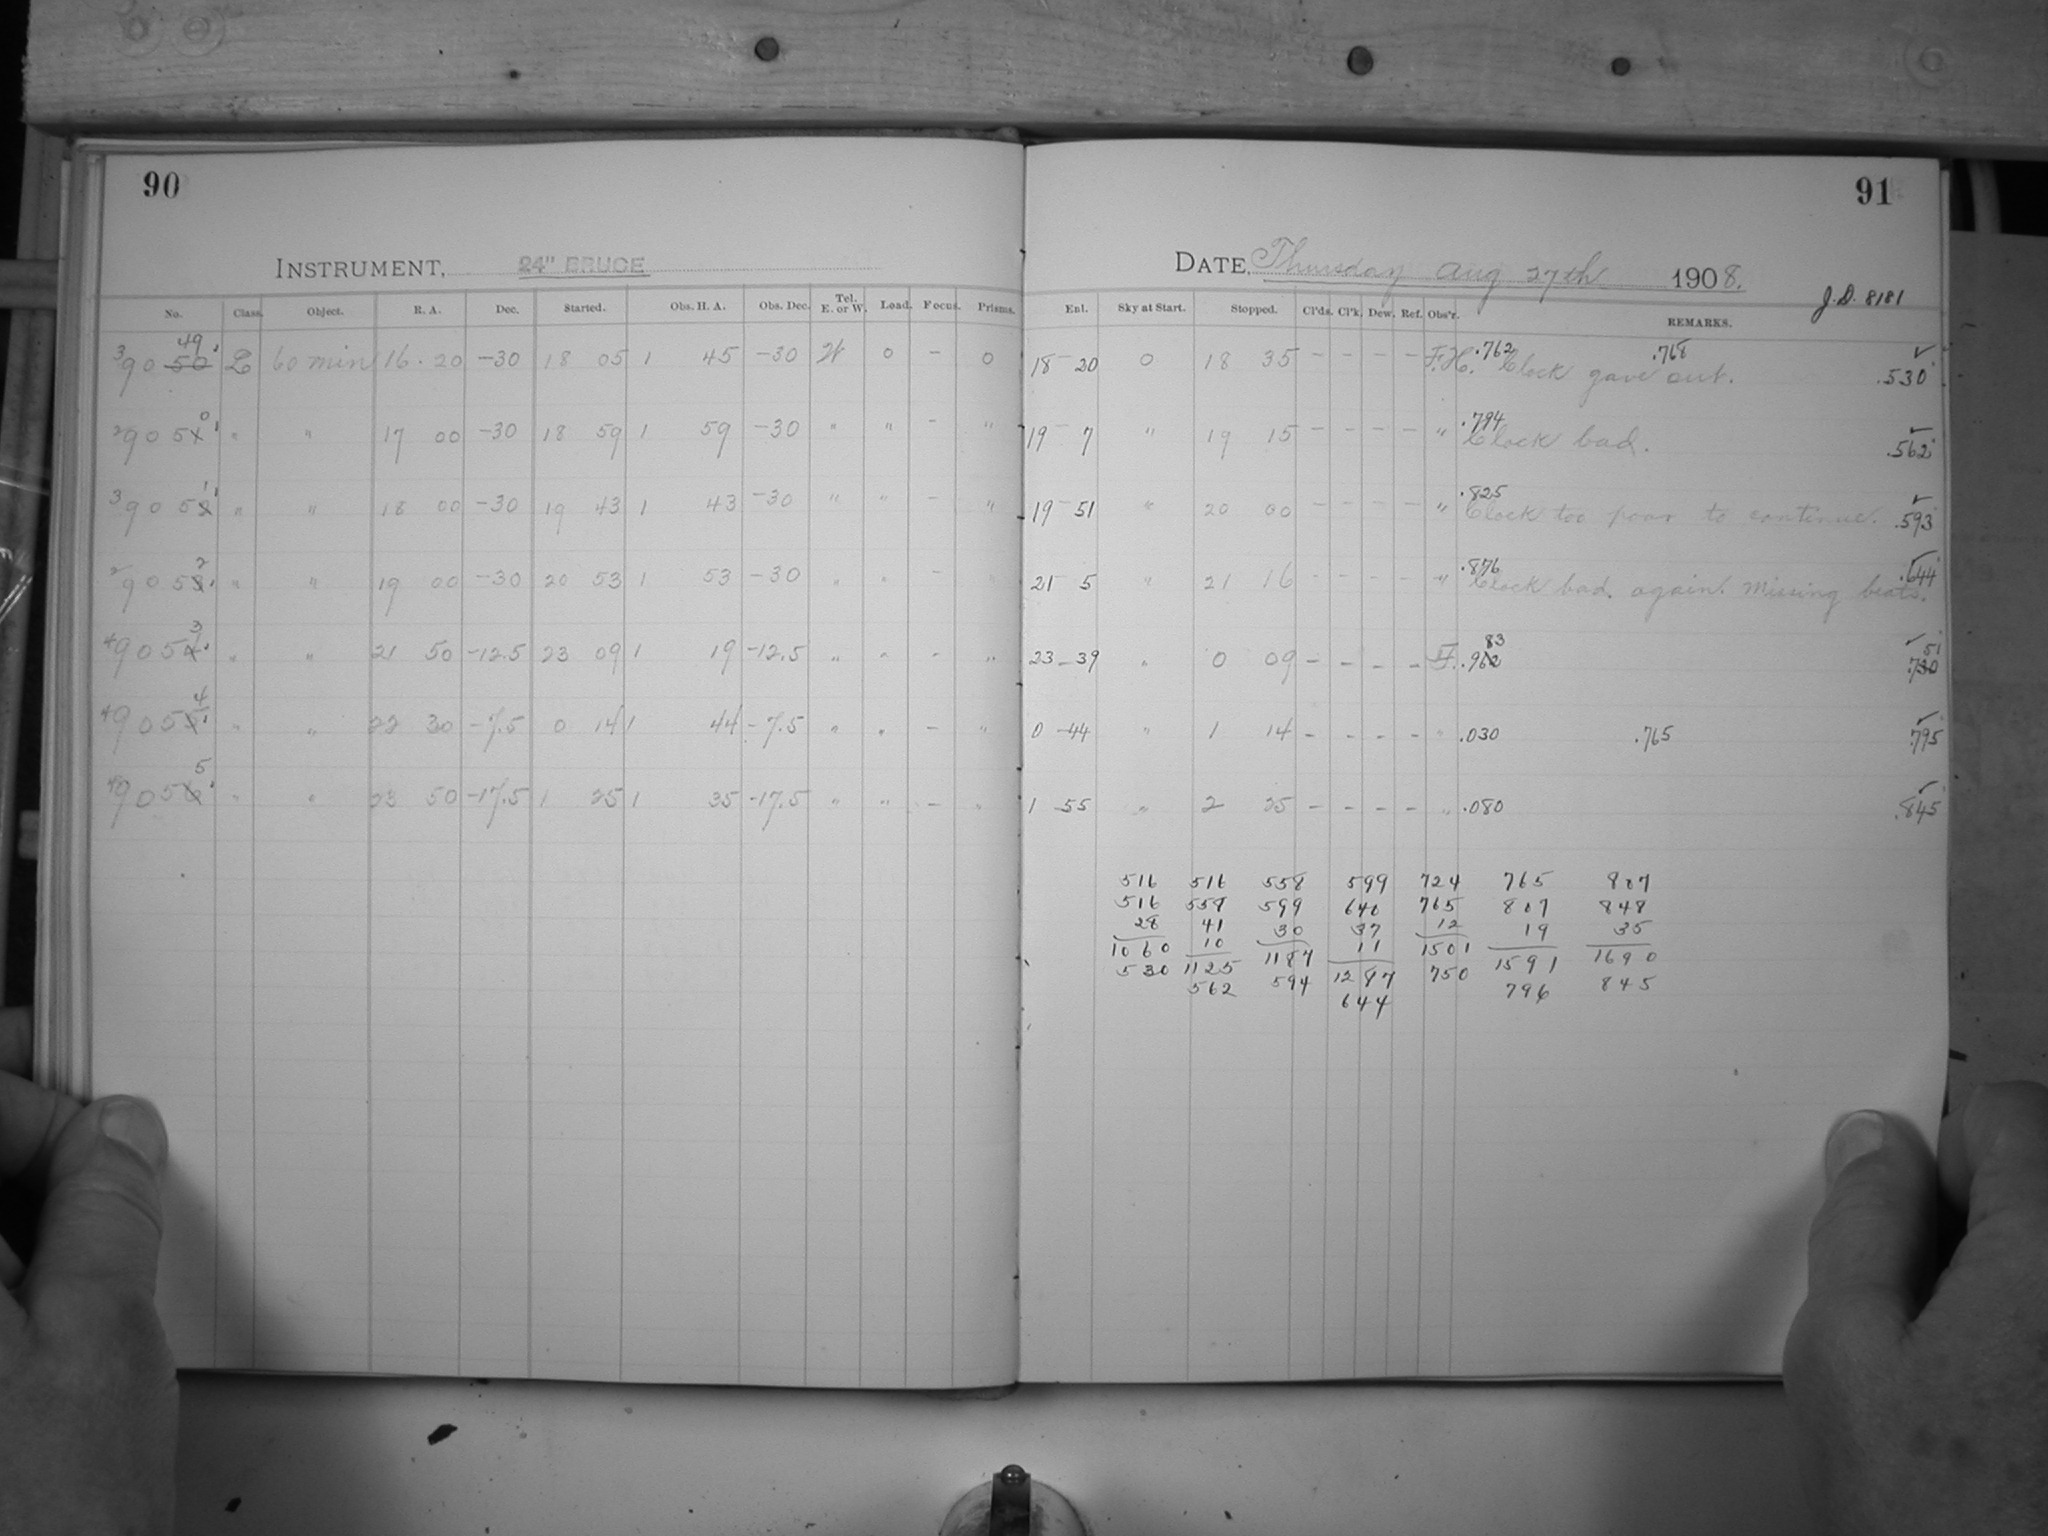 90
INSTRUMENT, 24" BRUCE
No. Class. Object. R. A. Dec. Started. Obs. H. A. Obs. Dec. Tel. E. or W. Load. Focus. Prisms.
49
3 9050 L 60 min 16 20 -30 18 05 1 45 -30 W 0 - 0
0
2 9051 " " 17 00 -30 18 59 1 59 -30 " " - "
1
3 9052 " " 18 00 -30 19 43 1 43 -30 " " - "
2
2 9053 " " 19 00 -30 20 53 1 53 -30 " " - "
3
4 9054 " " 21 50 -12.5 23 09 1 19 -12.5 " " - "
4
4 9055 " " 22 30 -7.5 0 14 1 44 -7.5 " " - "
5
4 9056 " " 23 50 -17.5 1 25 1 35 -17.5 " " - "
91
DATE, Thursday Aug 27th 1908.
J.D. 8181
Enl. Sky at Start. Stopped. Cl'ds. Cl'k. Dew. Ref. Obs'r. REMARKS.
.762 .768
18-20 0 18 35 - - - - F.H. Clock gave out. .530
.794
19-7 " 19 15 - - - - " Clock bad. .562
.825
19-51 " 20 00 - - - - " Clock too poor to continue. .593
.876
21-5 " 21 16 - - - - " Clock bad. again. Missing beats. .644
83 51
23-39 " 0 09 - - - - .962 .730
0-44 " 1 14 - - - - " .030 .765 .795
1-55 " 2 25 - - - - " .080 .845
516 516 558 599 724 765 807
516 558 599 640 765 807 848
28 41 30 37 12 19 35
1060 10 1187 11 1501 1591 1690
530 1125 594 1287 750 796 845
562 644